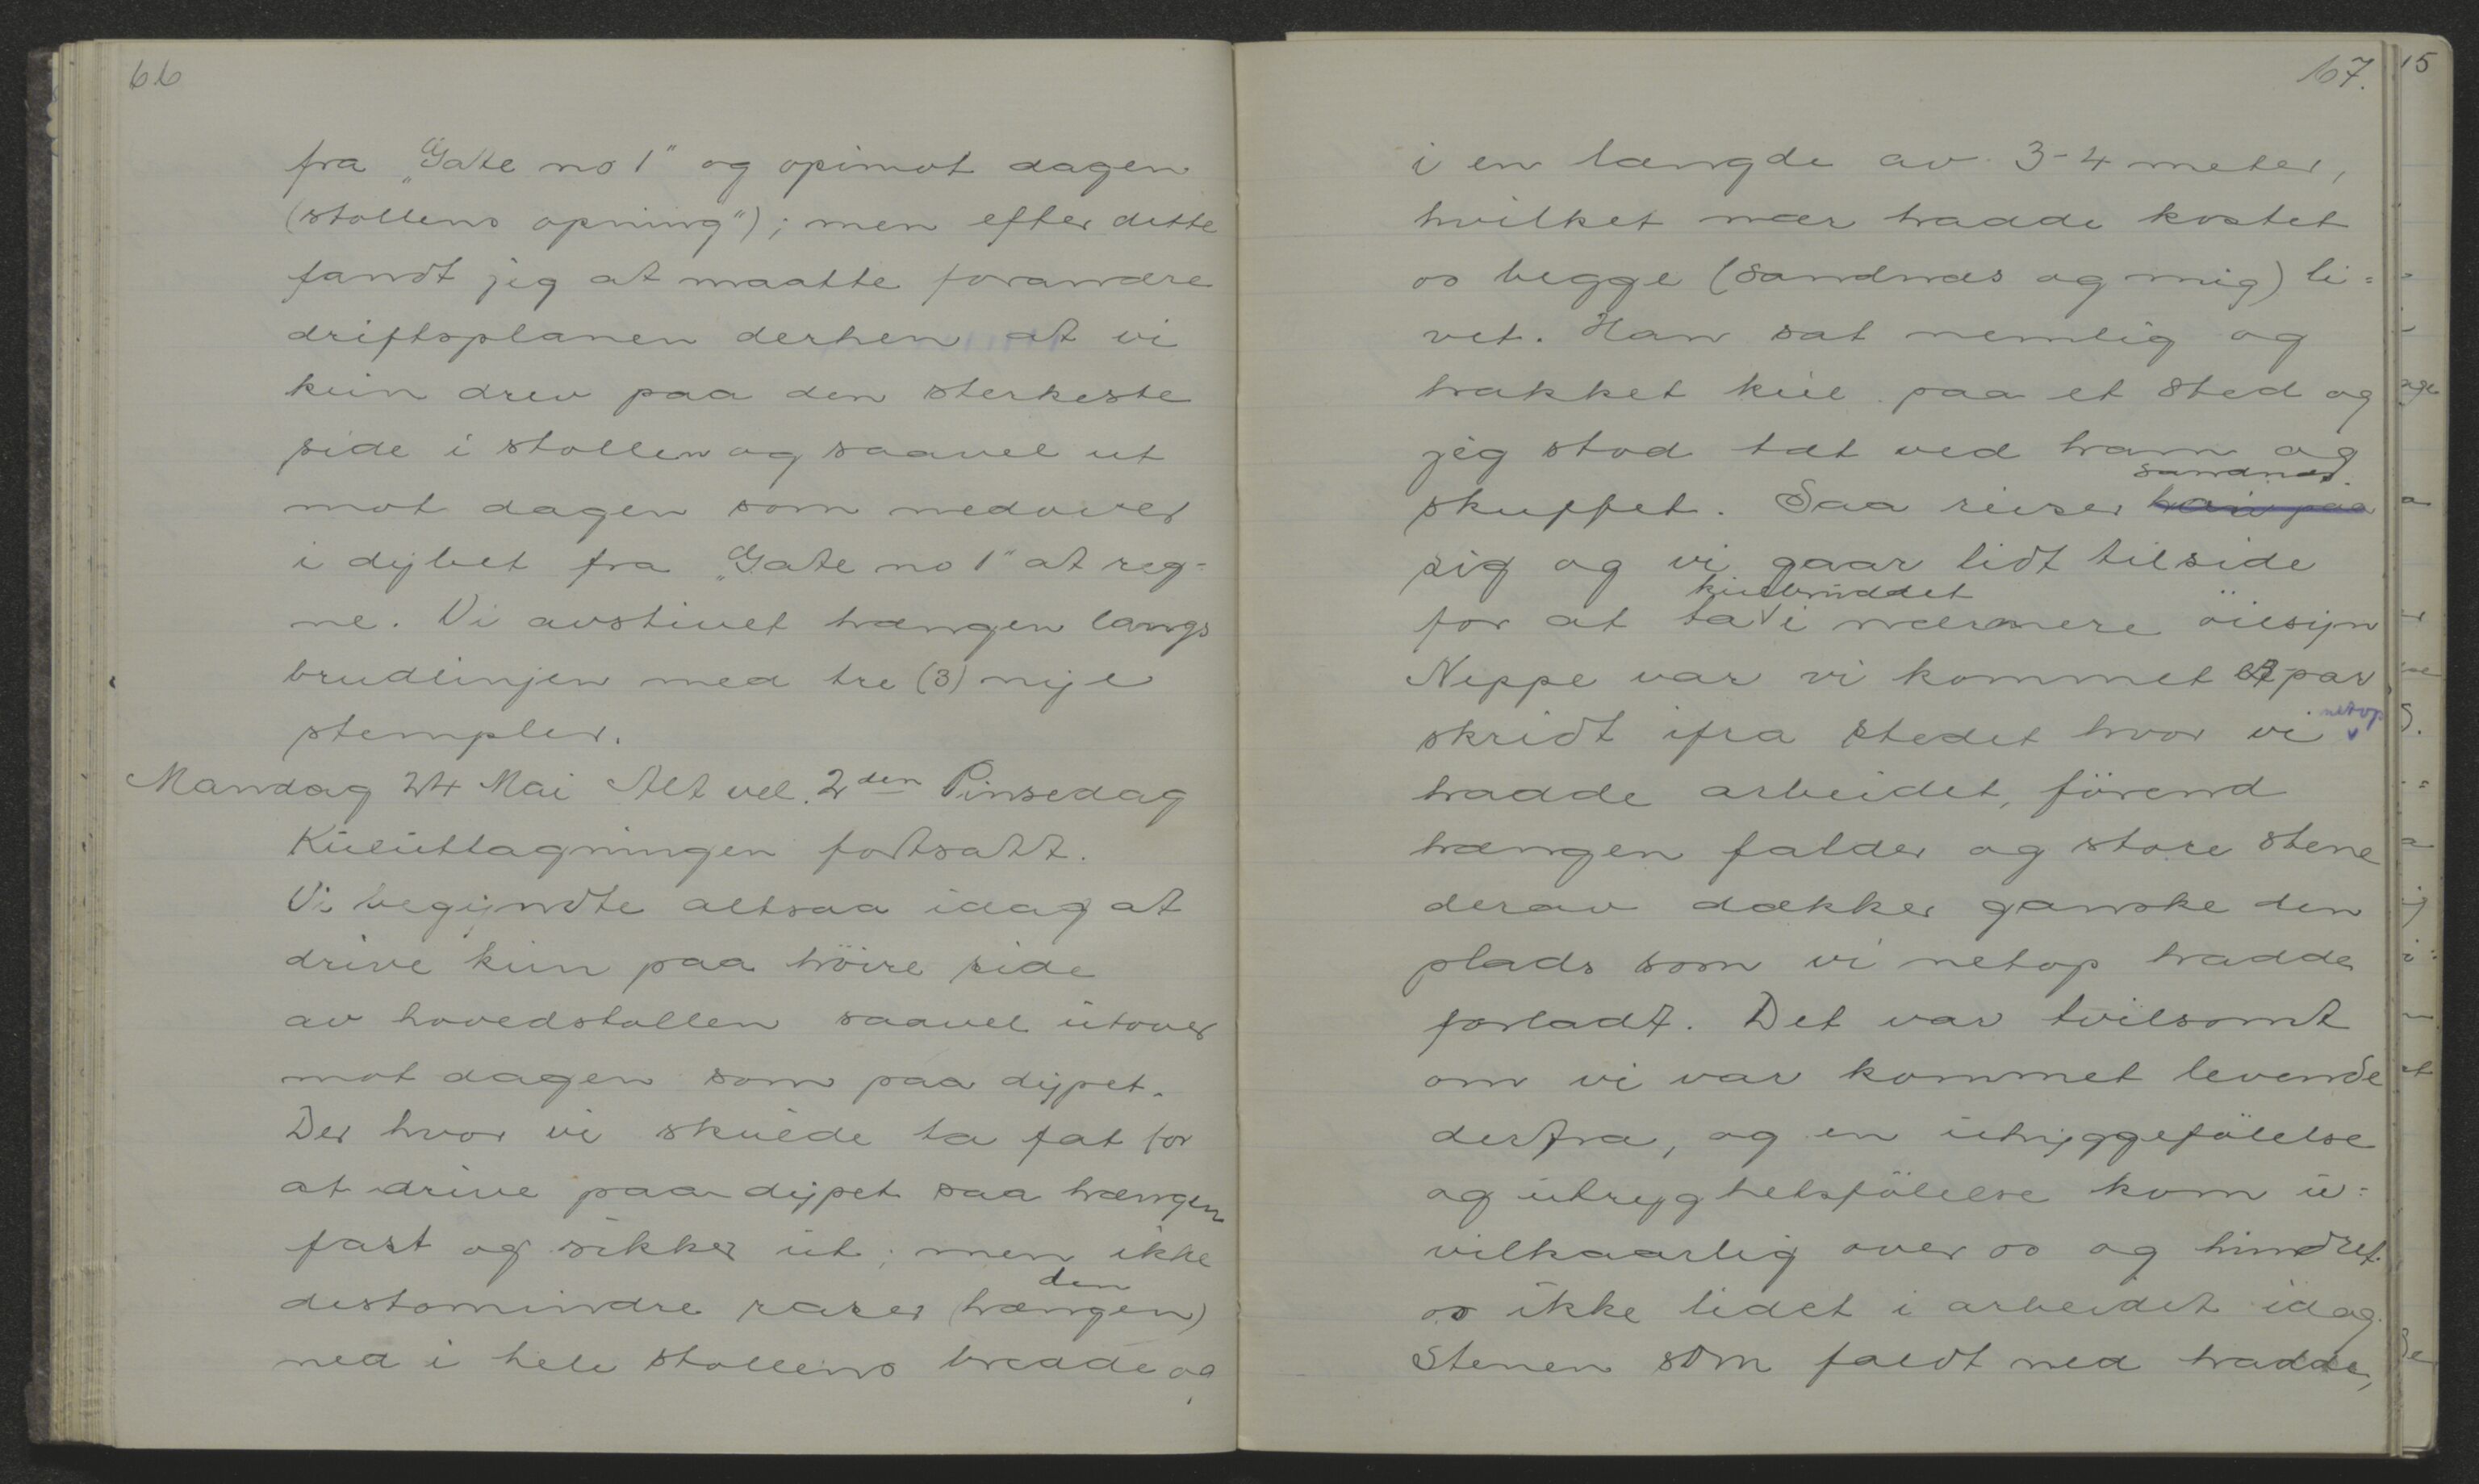 66
fra „Gate no 1" og opimot dagen
(stollens opning"); men efter dette
fandt jeg at maatte forandre
driftsplanen derhen at vi
kun drev paa den sterkeste
side i stollen og saavel ut
mot dagen som nedover
i dybet fra „Gate no 1" at reg-
ne. Vi avstivet hængen langs
brudlinjen med tre (3) nye
stempler.
Mandag 24 Mai Alt vel. 2den Pinsedag
Kuluttagningen fortsatt.
Vi begyndte altsaa idag at
drive kun paa höire side
av hovedstollen saavel utover
mot dagen som paa dypet.
Der hvor vi skulde ta fat for
at drive paa dypet saa hængen
fast og sikker ut; men ikke
den
destomindre raser (hængen)
ned i hele stollens bredde og
67.
i en længde av 3-4 meter,
hvilket nær hadde kostet
os begge (Sandnæs og mig) li=
vet. Han sat nemlig og
hakket kul paa et sted og
jeg stod tæt ved ham og
Sandnæs
skuffet. Saa reiser han paa
sig og vi gaar lidt tilside
kulbruddet
for at ta i nærmere öiesyn
Neppe var vi kommet et par
netop
skridt ifra stedet hvor vi
hadde arbeidet, förend
hængen falder og store stene
derav dækker ganske den
plads som vi netop hadde
forladt. Det var tvilsomt
om vi var kommet levende
derfra, og en uhyggefölelse
og utryghetsfölelse kom u=
vilkaarlig over os og hindret
os ikke lidet i arbeidet idag.
Stenen som faldt ned hadde,
15